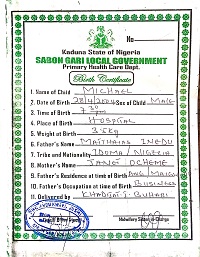 No
Kaduna State of Nigeria
SABON GARI LOCAL GOVERNMENT
Primary Health Care Dept.
Birth Certificate
1. Name of Child MICHAEL
2. Date of Birth 28/4/2004 Sex of Child MALE
3. Time of Birth 7:30
4. Place of Birth HOSPITAL
5. Weight at Birth 3.5kg
6. Father's Name MATHAIAS INEDU
7. Tribe and Nationality IDOMA/NIGERIA
8. Mother's Name JANET OCHEME
9. Father's Residence at time of Birth
10. Father's Occupation at time of Birth BUSINESS
11. Delivered by KHADIJAT J. BUHARI